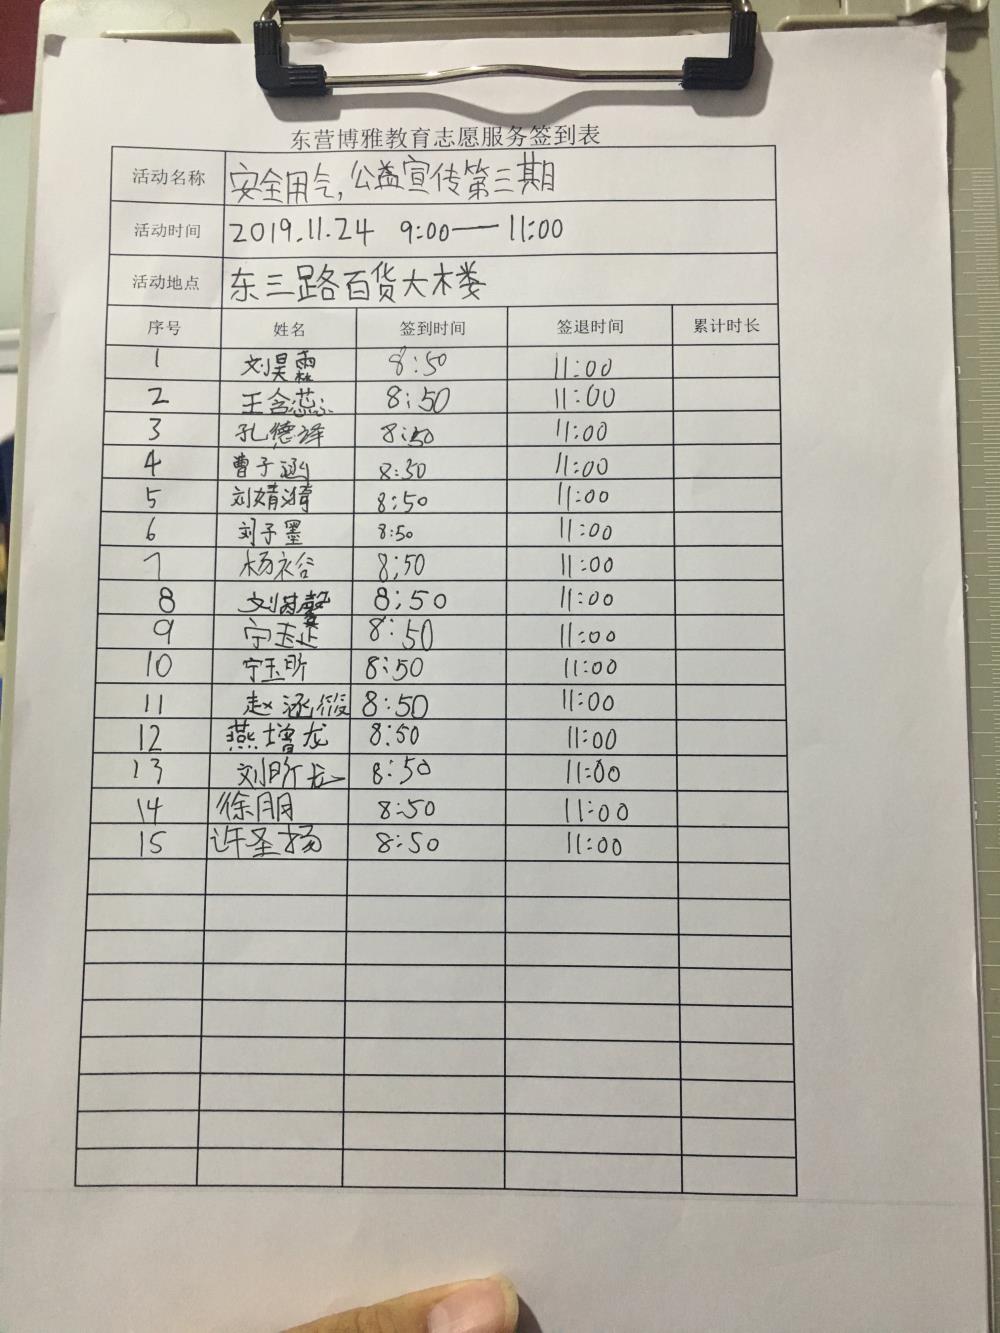 东营博雅教育志愿服务签到表
活动名称 安全用气，公益宣传第三期
活动时间 2019.11.24 9:00—11:00
活动地点 东三路百货大楼
序号 姓名 签到时间 签退时间 累计时长
1 刘昊霖 8:50 11:00
2 王含蕊 8:50 11:00
3 孔德译 8:50 11:00
4 曹子涵 8:30 11:00
5 刘婧漪 8:50 11:00
6 刘子墨 8:50 11:00
7 杨 8:50 11:00
8 刘 馨 8:50 11:00
9 宁玉 8:50 11:00
10 宁玉昕 8:50 11:00
11 赵涵 8:50 11:00
12 燕增龙 8:50 11:00
13 刘昕 8:50 11:00
14 徐朋 8:50 11:00
15 许圣扬 8:50 11:00